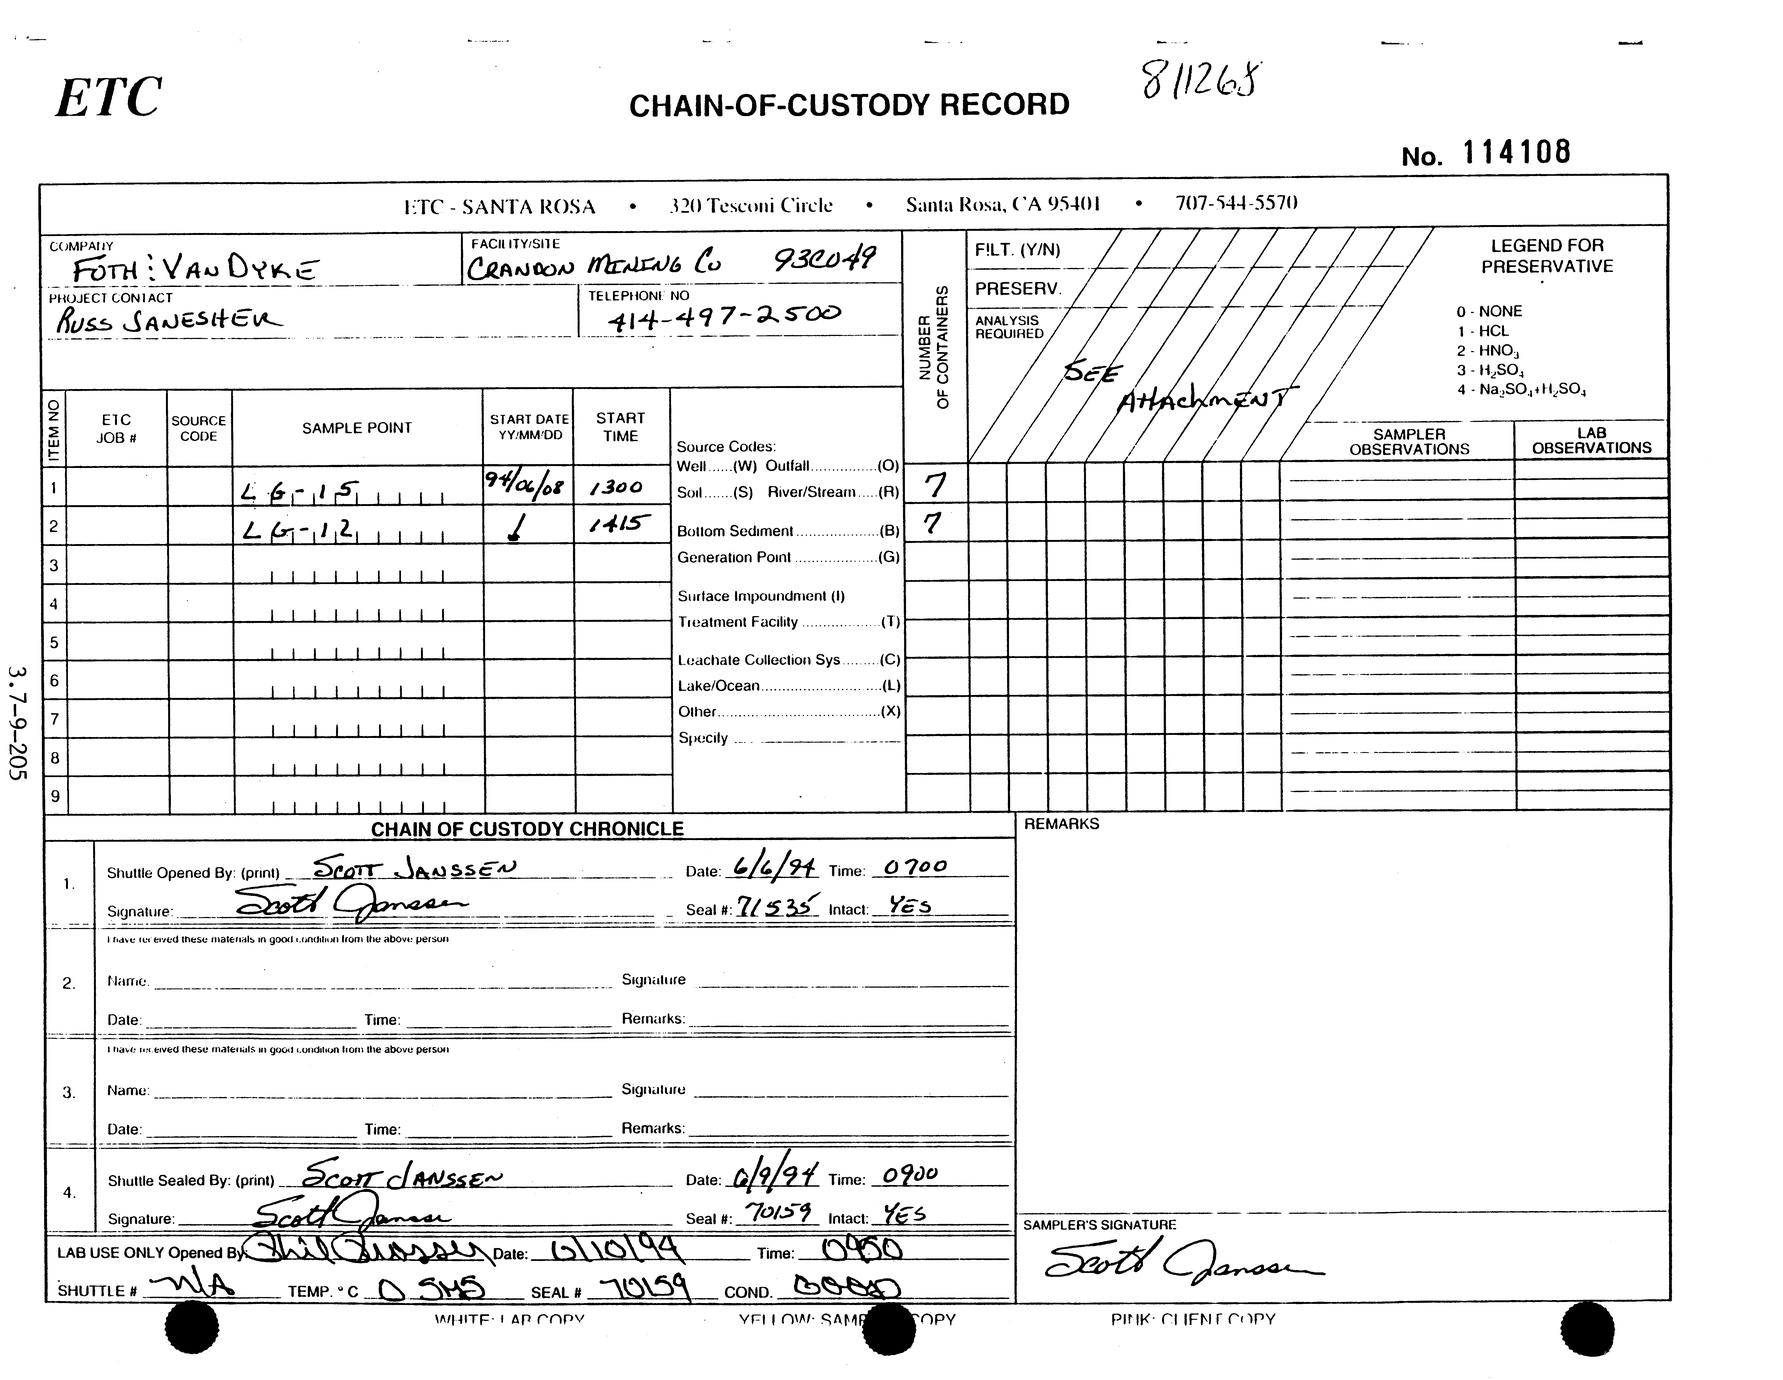 811268
ETC
CHAIN-OF-CUSTODY RECORD
No. 114108
ETC - SANTA ROSA • 320 Tesconi Circle • Santa Rosa, CA 95401 • 707-544-5570
COMPANY
FOTH : VAN DYKE
FACILITY/SITE
CRANDON MINING CO 93C049
PROJECT CONTACT
RUSS JANESHEK
TELEPHONE NO
414-497-2500
NUMBER OF CONTAINERS
FILT. (Y/N)
PRESERV.
ANALYSIS REQUIRED
SEE ATTACHMENT
LEGEND FOR PRESERVATIVE
0 - NONE
1 - HCL
2 - HNO₃
3 - H₂SO₄
4 - Na₂SO₄+H₂SO₄
ITEM NO ETC JOB # SOURCE CODE SAMPLE POINT START DATE YY/MM/DD START TIME
SAMPLER OBSERVATIONS LAB OBSERVATIONS
Source Codes:
Well......(W) Outfall...............(O)
Soil.......(S) River/Stream.....(R)
Bottom Sediment...................(B)
Generation Point....................(G)
Surface Impoundment (I)
Treatment Facility..................(T)
Leachate Collection Sys........(C)
Lake/Ocean...........................(L)
Other.....................................(X)
Specify
1 LG-15 94/06/08 1300 7
2 LG-12 ↓ 1415 7
3
4
5
6
7
8
9
CHAIN OF CUSTODY CHRONICLE
REMARKS
1.
Shuttle Opened By: (print) SCOTT JANSSEN Date: 6/6/94 Time: 0700
Signature: Scott Janssen Seal #: 71535 Intact: YES
2.
I have received these materials in good condition from the above person
Name: Signature
Date: Time: Remarks:
3.
I have received these materials in good condition from the above person
Name: Signature
Date: Time: Remarks:
4.
Shuttle Sealed By: (print) SCOTT JANSSEN Date: 6/9/94 Time: 0900
Signature: Scott Janssen Seal #: 70159 Intact: YES
LAB USE ONLY Opened By: Phil Date: 6/10/94 Time: 0950
SHUTTLE # N/A TEMP. °C 0 SEAL # 70159 COND. GOOD
SAMPLER'S SIGNATURE
Scott Janssen
WHITE: LAB COPY YELLOW: COPY PINK: CLIENT COPY
3.7-9-205